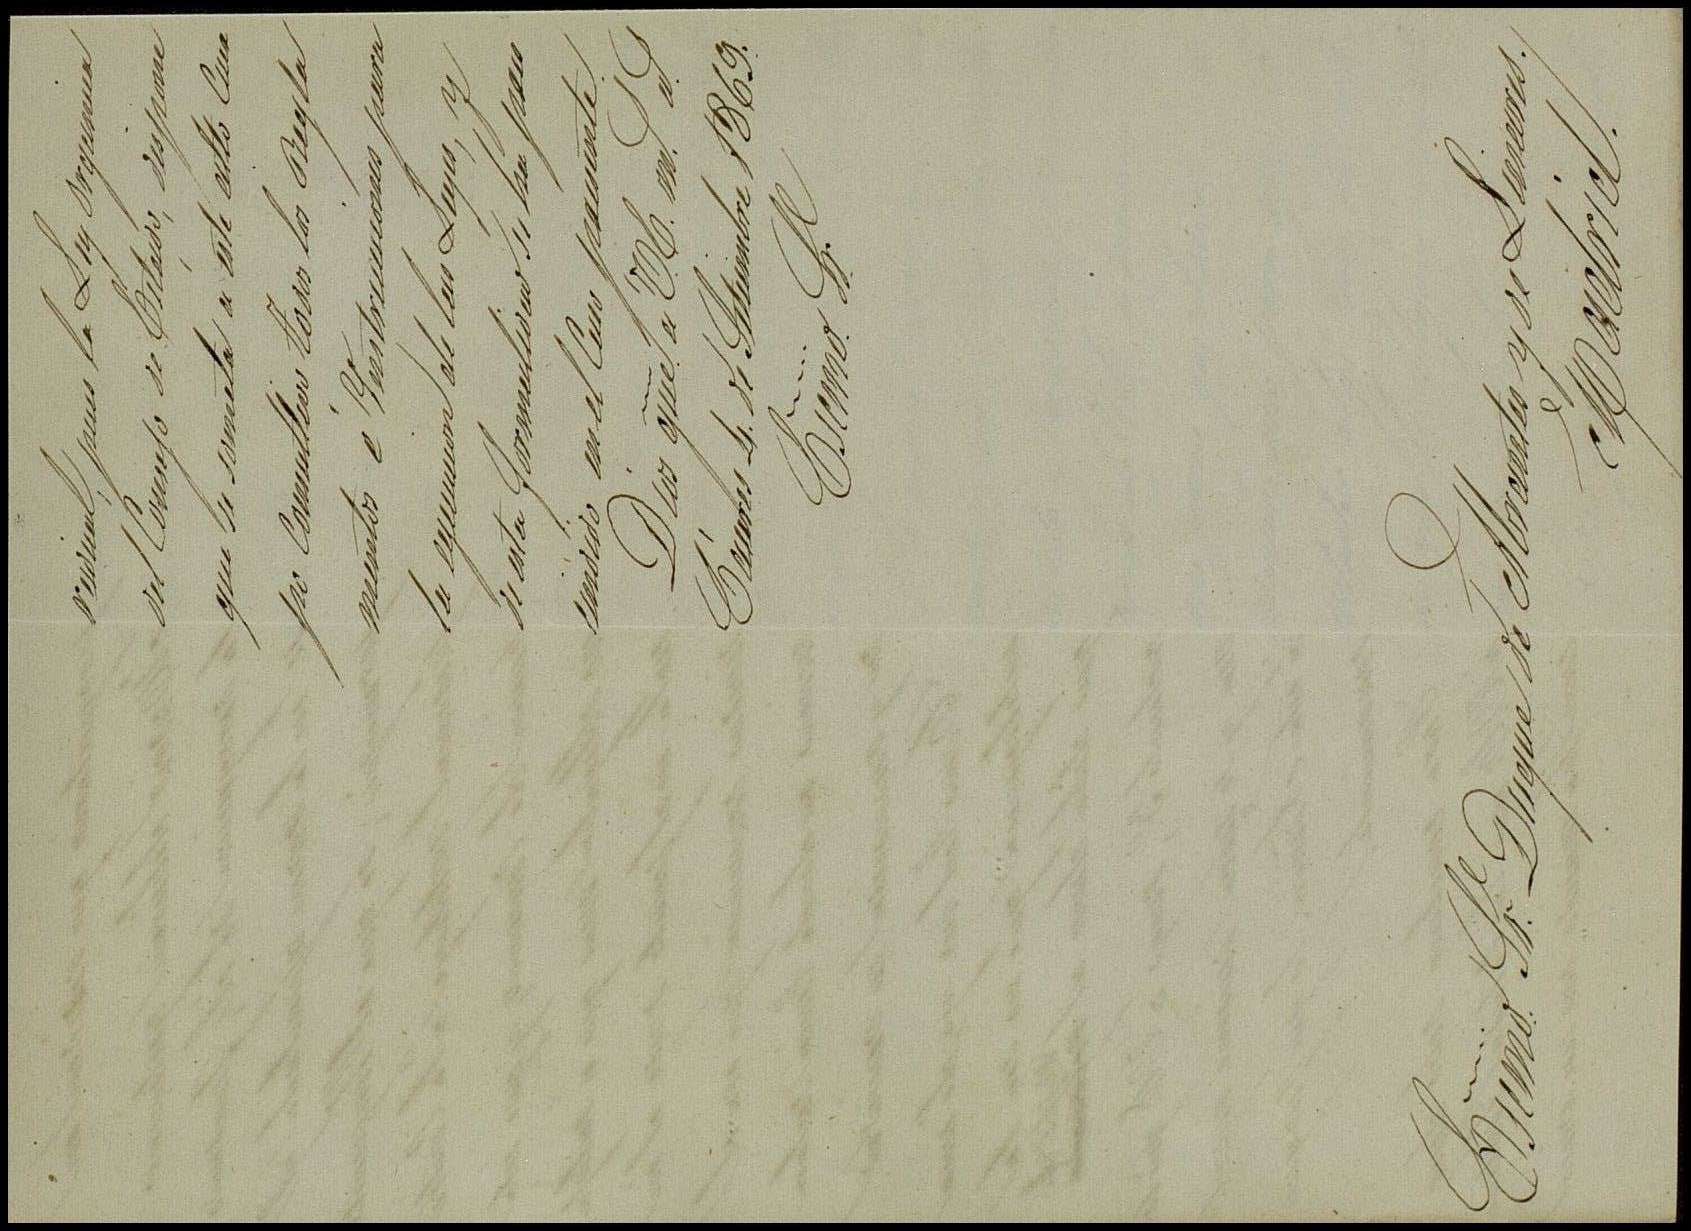 vicial, pues la Ley organica
del Consejo de Estado, dispone
que se someta a este alto Cuer
po Consultivo todos los Regla
mentos e Ynstrucciones para
la egecucion de las Leyes, y
de esta formalidad se ha pres
cindido en el Caso presente.
Dios gue. a V.E. m. a.
Linares 4 de Setiembre 1869.
Excmo. Sr.
Excmo. Sr. Duque de Abrantes y de Linares.
Madrid.